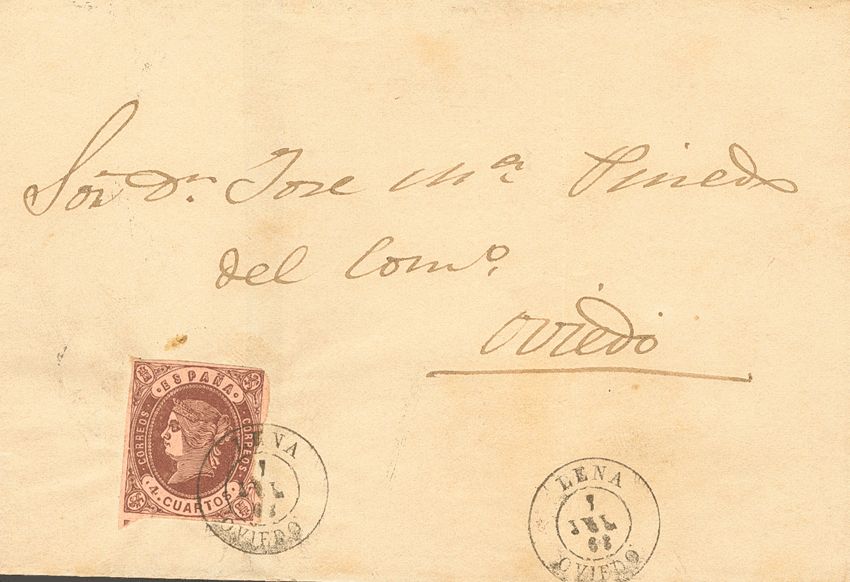 Sor. Dn. Jose Ma. Pinedo
del Como.
Oviedo
· ESPAÑA ·
CORREOS
CORREOS
4. CUARTOS
LENA
JUL
OVIEDO
LENA
JUL
OVIEDO